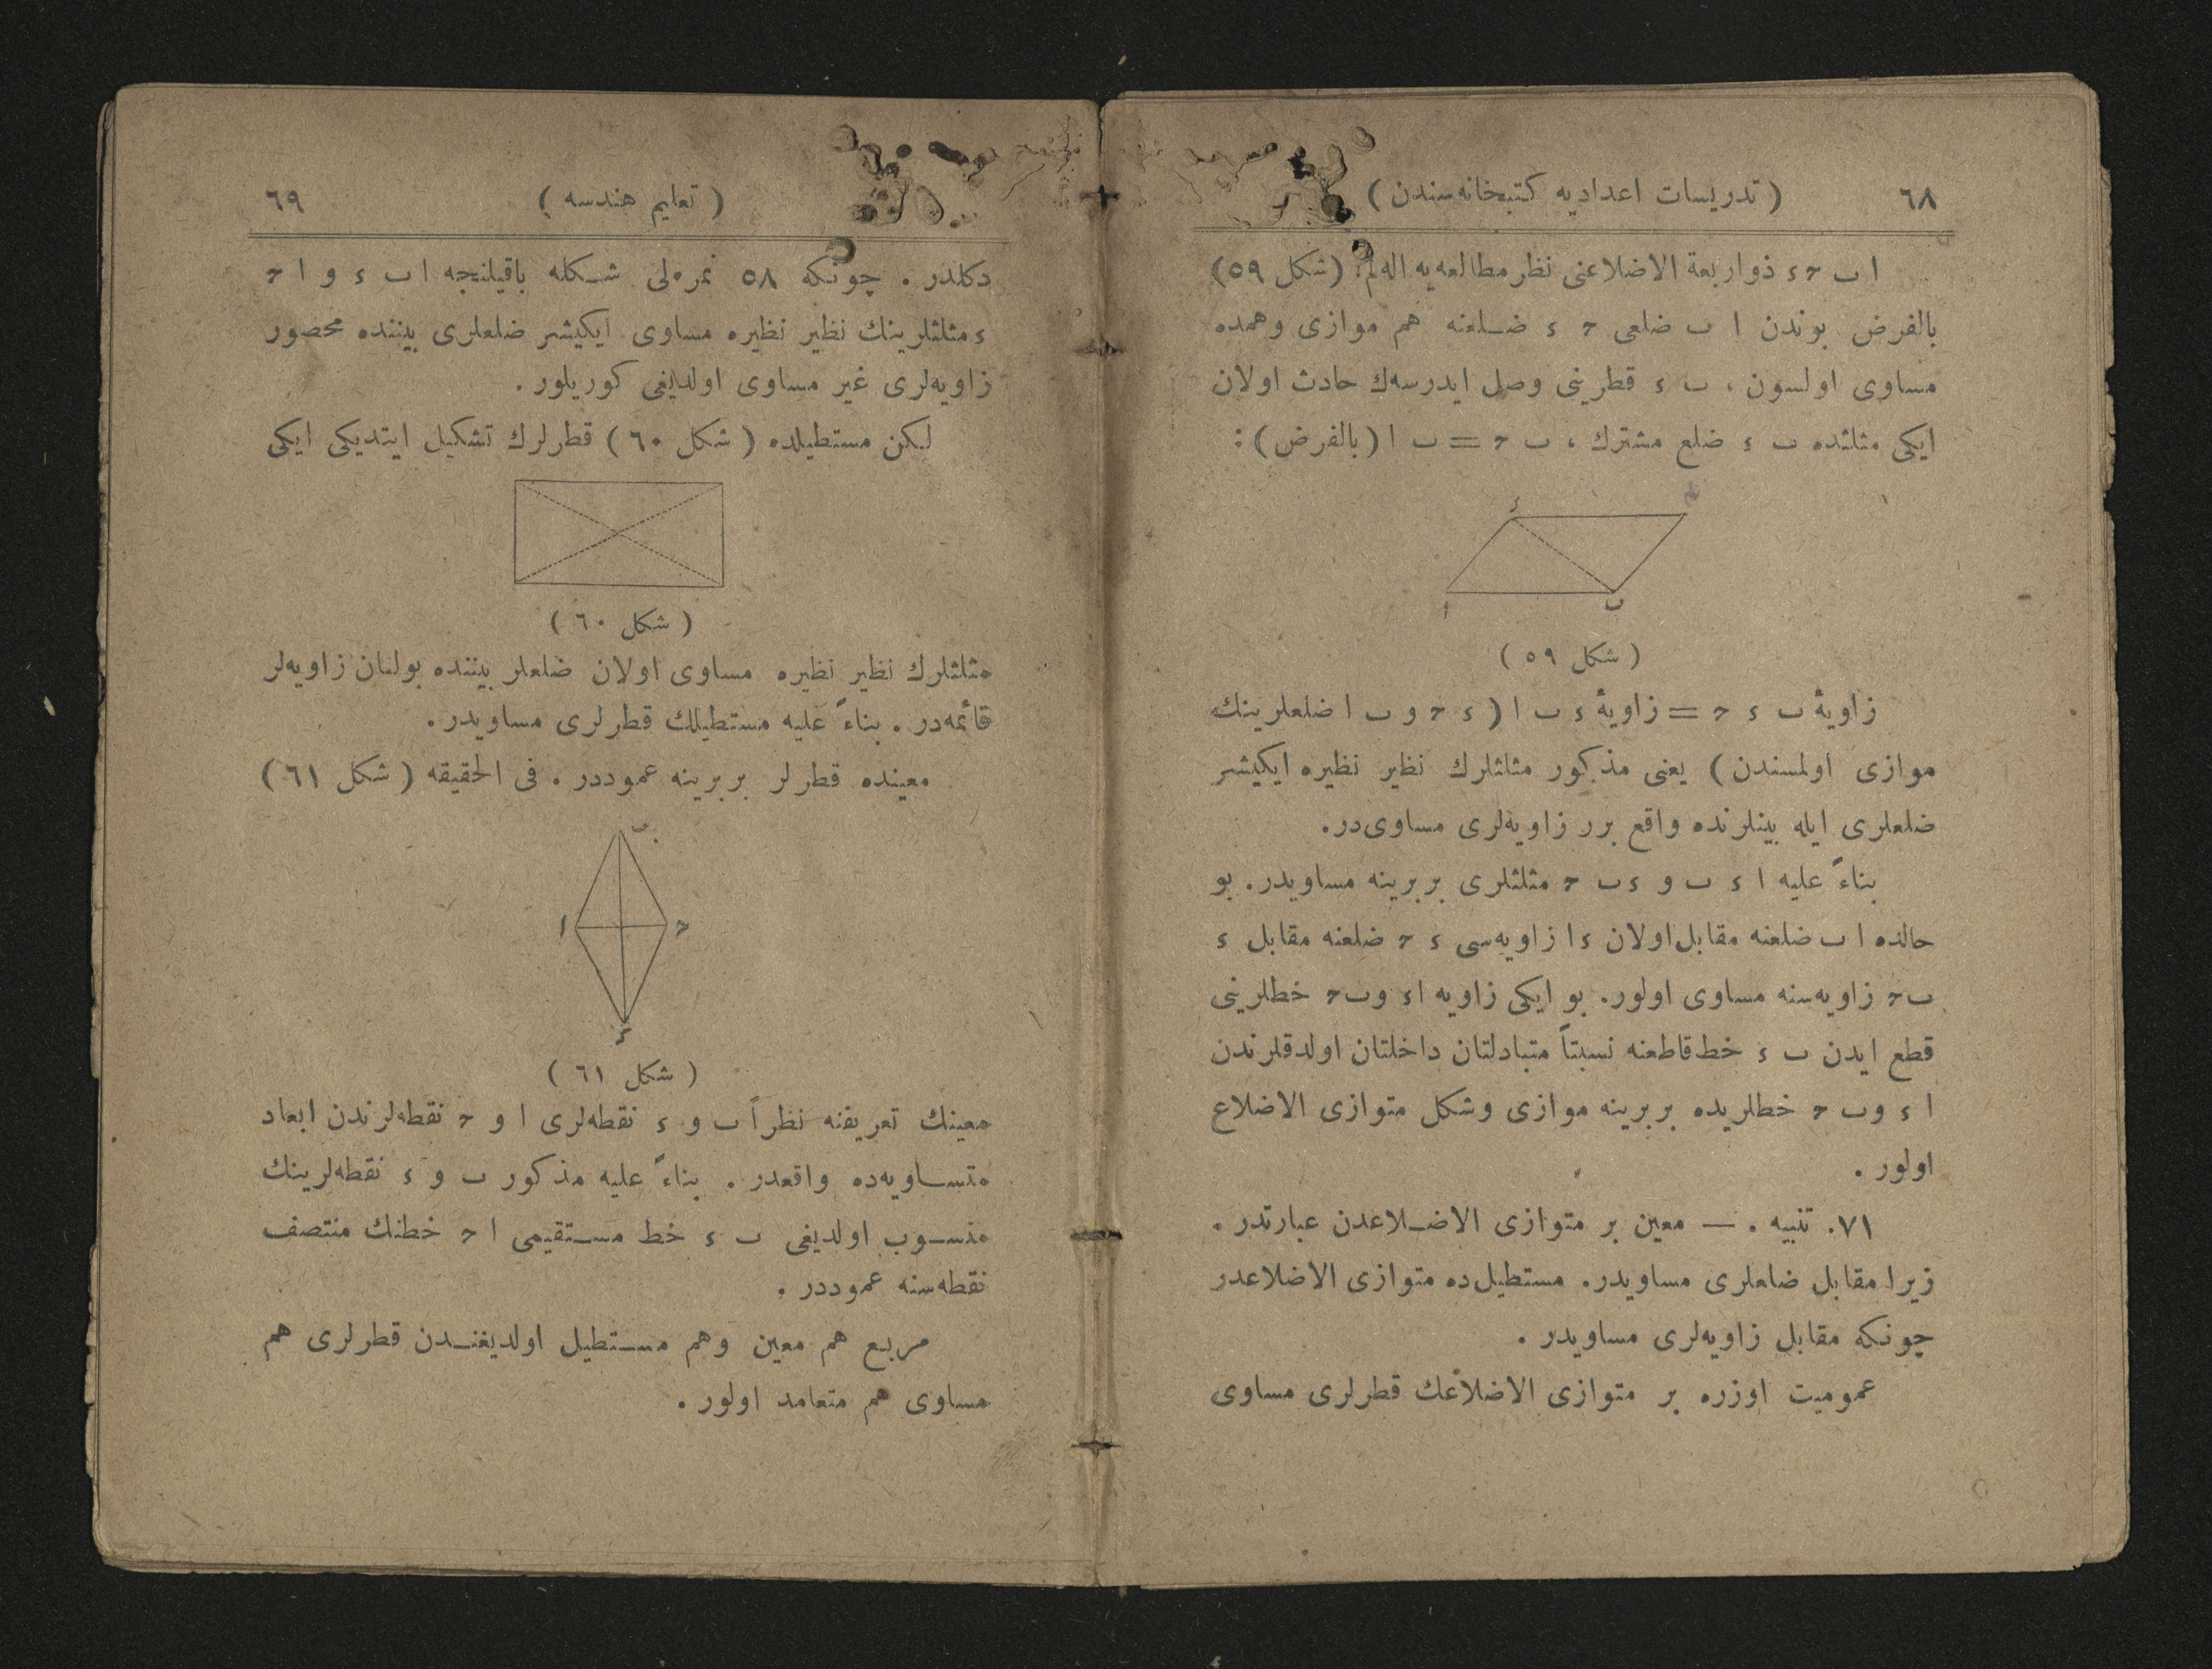 ٦٨
( تدريسات اعداديه كتبخانه‌سندن )
ا ب ح ء ذواربعة الاضلاعنى نظر مطالعه‌يه اله‌لم . (شكل ٥٩)
بالفرض بوندن ا ب ضلعى ح ء ضلعنه هم موازى وهمده
مساوى اولسون ، ب ء قطرينى وصل ايدرسه‌ك حادث اولان
ايكى مثلثده ب ء ضلع مشترك ، ب ح = ب ا (بالفرض) :
ء
ا
ب
( شكل ٥٩ )
زاويۀ ب ء ح = زاويۀ ء ب ا ( ء ح و ب ا ضلعلرينك
موازى اولمسندن ) يعنى مذكور مثلثلرك نظير نظيره ايكيشر
ضلعلرى ايله بينلرنده واقع برر زاويه‌لرى مساوى‌در.
بناءً عليه ا ء ب و ء ب ح مثلثلرى بربرينه مساويدر. بو
حالده ا ب ضلعنه مقابل اولان ء ا زاويه‌سى ء ح ضلعنه مقابل ء
ب ح زاويه‌سنه مساوى اولور. بو ايكى زاويه ا ء و ب ح خطلرينى
قطع ايدن ب ء خط قاطعنه نسبتاً متبادلتان داخلتان اولدقلرندن
ا ء و ب ح خطلريده بربرينه موازى وشكل متوازى الاضلاع
اولور .
٧١. تنبيه . — معين بر متوازى الاضلاعدن عبارتدر .
زيرا مقابل ضلعلرى مساويدر. مستطيل‌ده متوازى الاضلاعدر
چونكه مقابل زاويه‌لرى مساويدر .
عموميت اوزره بر متوازى الاضلاعك قطرلرى مساوى
( تعليم هندسه )
٦٩
دكلدر . چونكه ٥٨ نمره‌لى شكله باقيلنجه ا ب ء و ا ح
ء مثلثلرينك نظير نظيره مساوى ايكيشر ضلعلرى بيننده محصور
زاويه‌لرى غير مساوى اولديغى كوريلور .
لكن مستطيلده ( شكل ٦٠ ) قطرلرك تشكيل ايتديكى ايكى
( شكل ٦٠ )
مثلثلرك نظير نظيره مساوى اولان ضلعلر بيننده بولنان زاويه‌لر
قائمه‌در . بناءً عليه مستطيلك قطرلرى مساويدر .
معينده قطرلر بربرينه عموددر . فى الحقيقه ( شكل ٦١ )
ب
ا
ح
ء
( شكل ٦١ )
معينك تعريفنه نظراً ب و ء نقطه‌لرى ا و ح نقطه‌لرندن ابعاد
متساويه‌ده واقعدر . بناءً عليه مذكور ب و ء نقطه‌لرينك
منسوب اولديغى ب ء خط مستقيمى ا ح خطنك منتصف
نقطه‌سنه عموددر .
مربع هم معين وهم مستطيل اولديغندن قطرلرى هم
مساوى هم متعامد اولور .